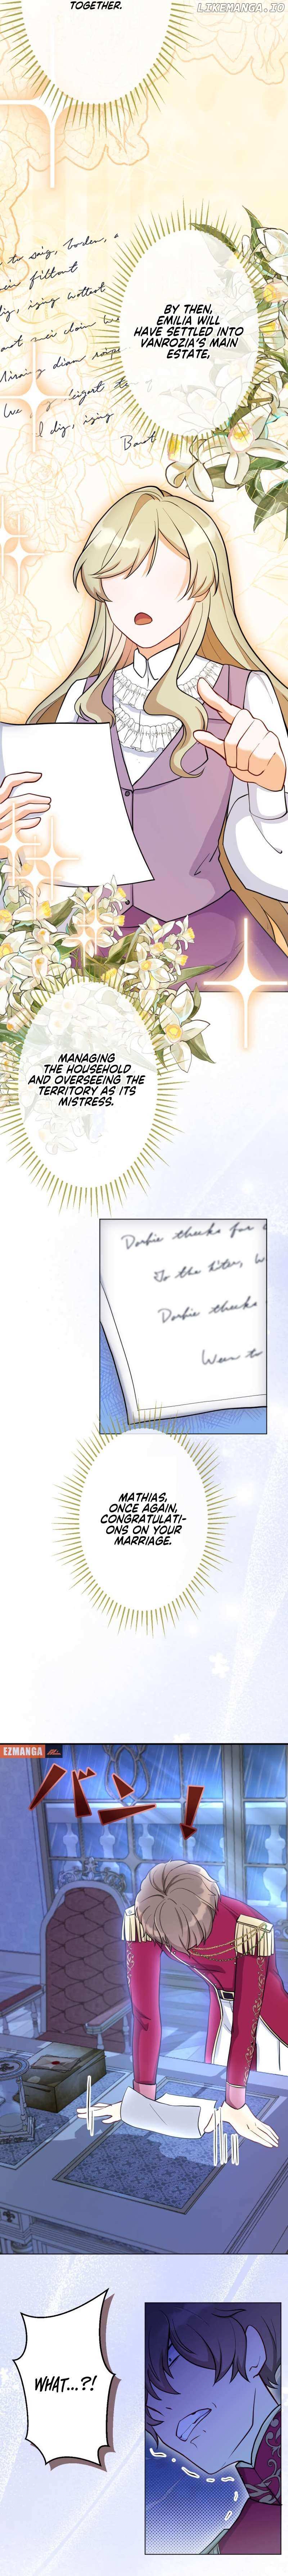 TOGETHER.
LIKEMANGA.IO
BY THEN,
EMILIA WILL
HAVE SETTLED INTO
VANROZIA'S MAIN
ESTATE,
MANAGING
THE HOUSEHOLD
AND OVERSEEING THE
TERRITORY AS ITS
MISTRESS.
MATHIAS,
ONCE AGAIN,
CONGRATULATI-
ONS ON YOUR
MARRIAGE.
EZMANGA
バンッ!
WHAT...?!